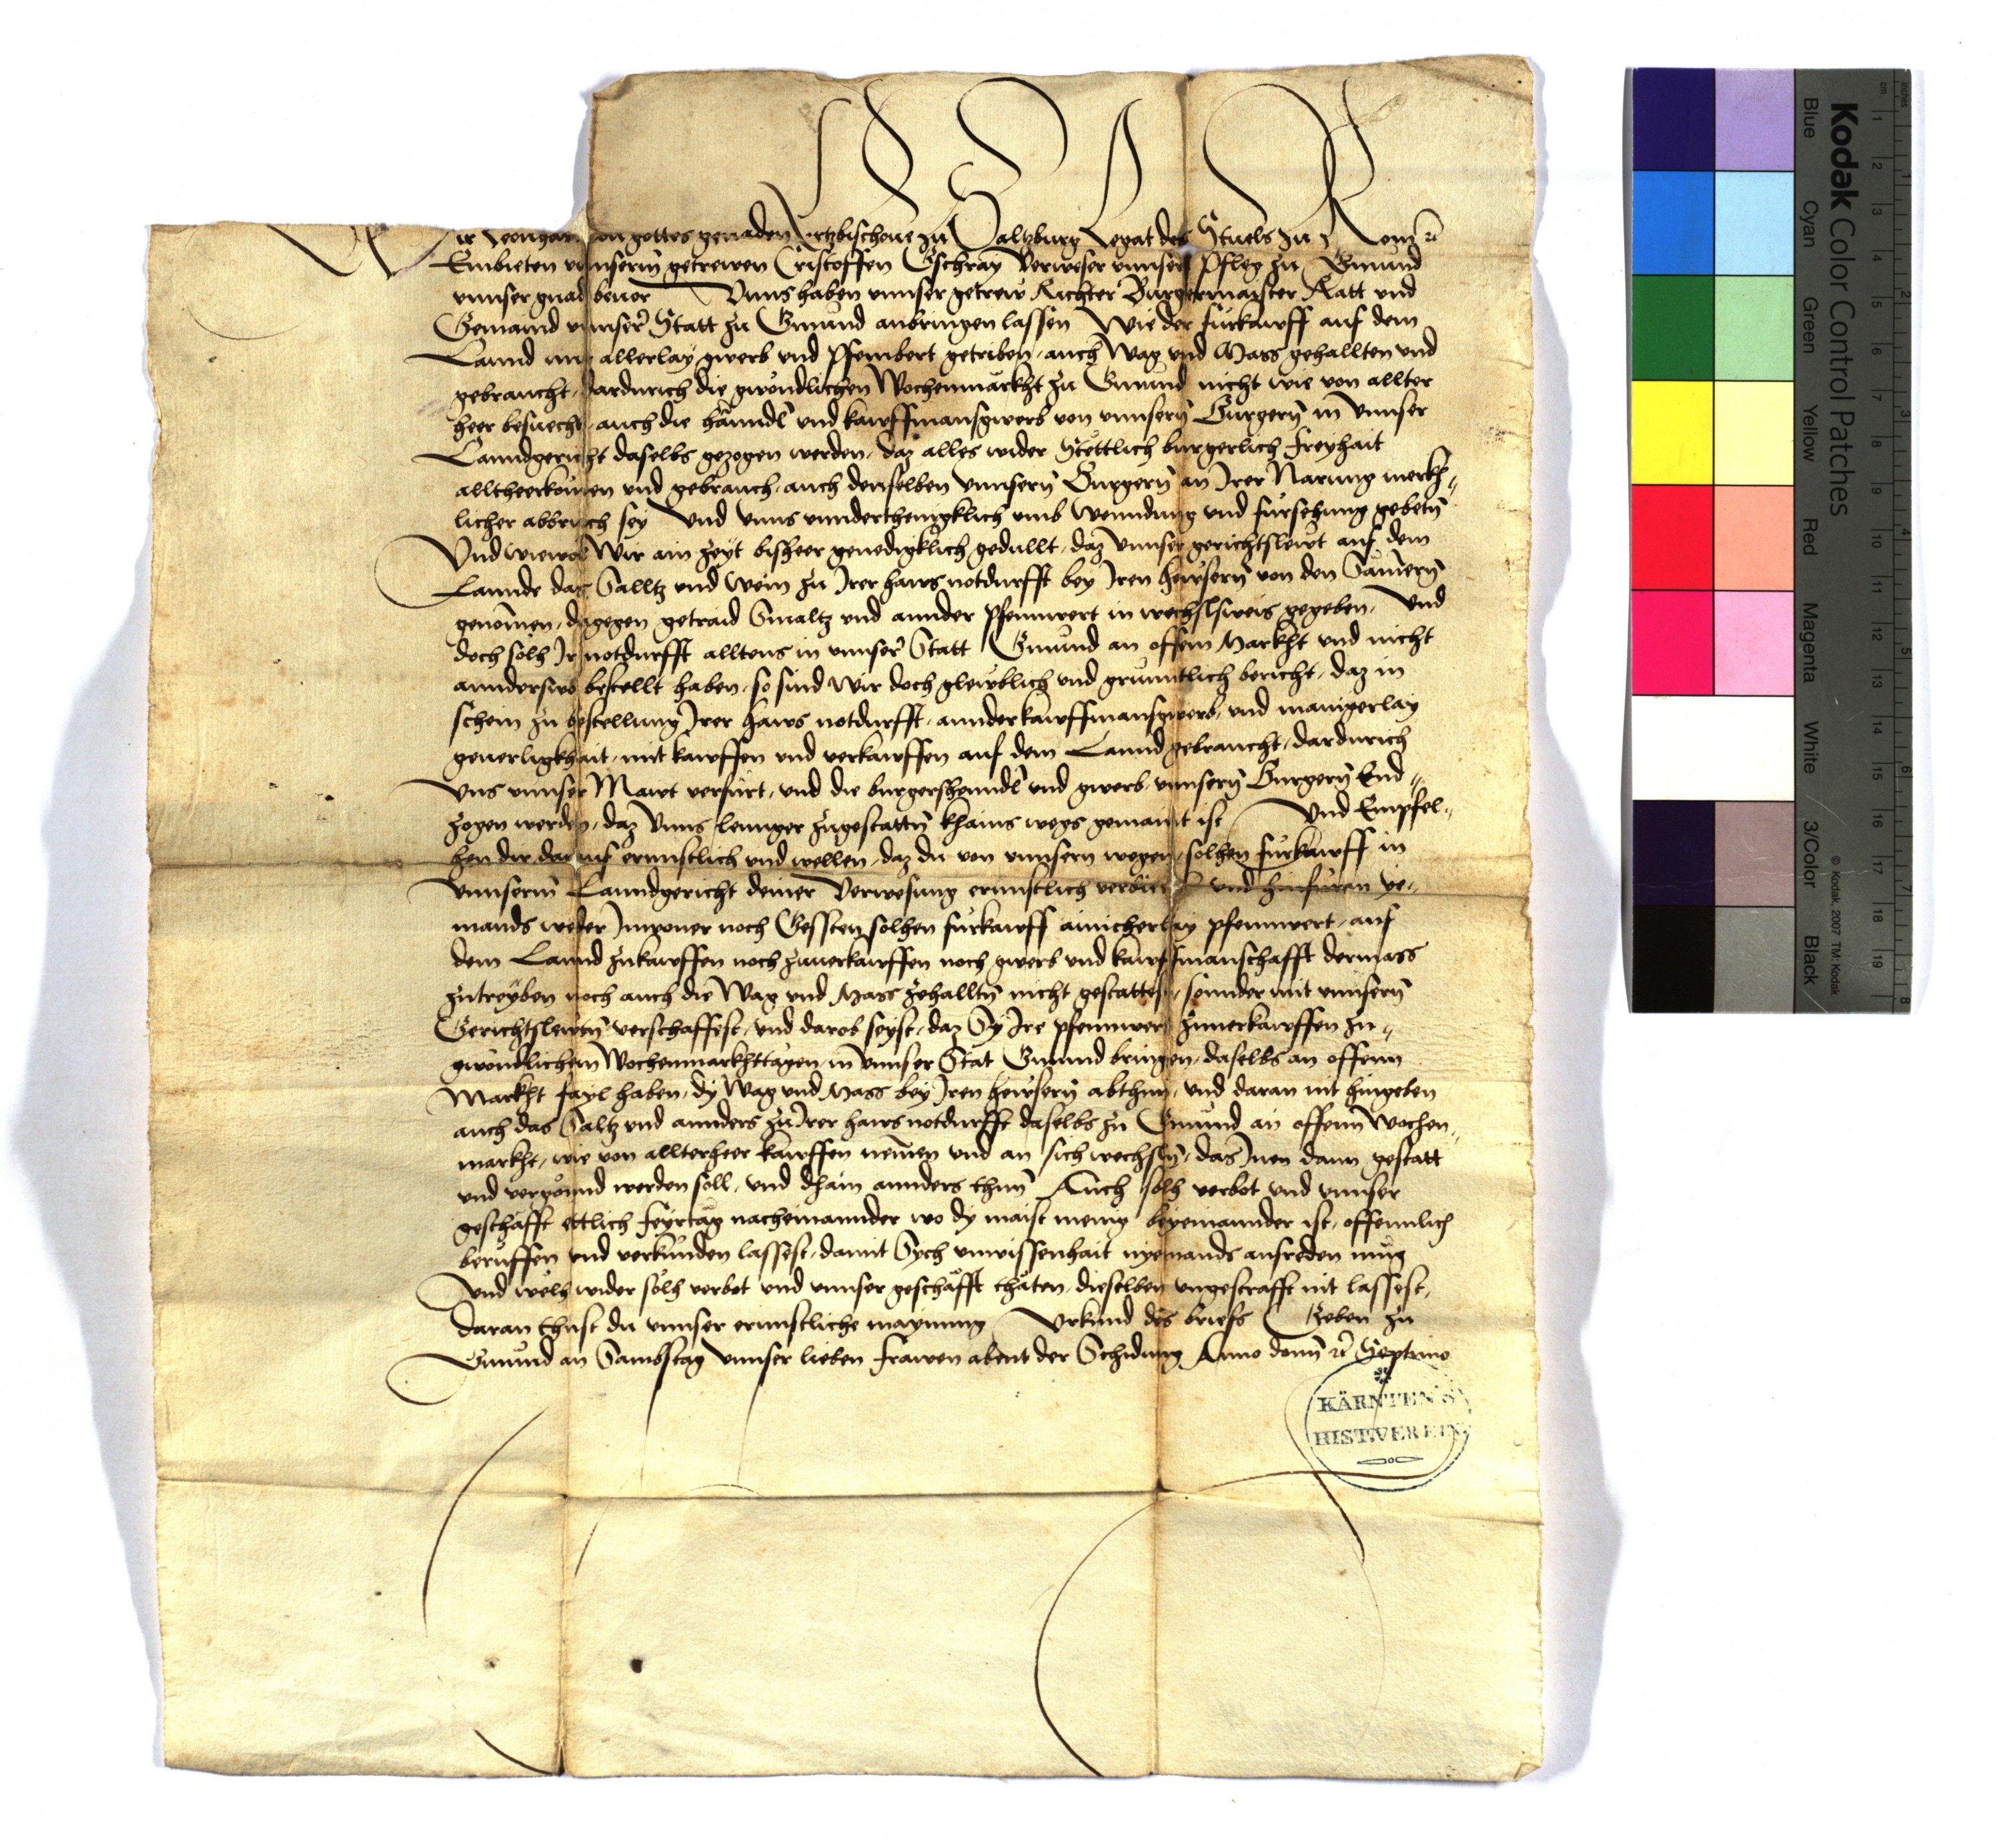 Wir Leonhart von gottes genaden Ertzbischoue zu Saltzburg Legat des Stuels zu Rom ꝛc
Embieten vnnserm getrewen Cristoffen Gschray Verweser vnnser Pfleg zu Gmund
vnnser gnad beuor Vnns haben vnnser getrew Richter Burgermaister Ratt vnd
Gemaind vnnser Statt zu Gmund anbringen lassen Wie der fürkawff auf dem
Lannd mit allerlay gwerb vnd Pfenbert getriben, auch Wag vnd Mass gehallten vnd
gebraucht, dardurich die gwondlichen Wochenmärkht zu Gmund nicht wie von allter
heer besuecht, auch die hänndl vnd kawffmansgwerb von vnnsern Burgern in vnnser
Lanndgericht daselbs gezogen werden, daz alles wider Stettlich burgerlich freyhait
alltheerkomen vnd gebrauch, auch denselben vnnsern Burgern an Irer Narung merkh-
licher abbruch sey Vnd vnns vnnderthenigklich vmb Wenndung vnd fürsehung gebetn
Vnd wiewol Wir ain zeyt bisheer genedigklich gedullt, daz vnnser gerichtslewt auf dem
Lannde das Salltz vnd Wein zu Irer haws notdurfft bey Iren hewsern von den Sämern
genomen, dagegen getraid Smaltz vnd annder Pfennwert in wechslsweis gegeben, Vnd
doch solh Ir notdurfft alltens in vnnser Statt Gmund an offem Markht vnd nicht
annderswo bestellt haben, so sind Wir doch glewblich vnd grunntlich bericht, daz in
schein zu bestellung Irer haws notdurfft, annder kawffmansgwerb, vnd manigerlay
geuerligkhait, mit kawffen vnd verkawffen auf dem Lannd gebraucht, dardurich
Vns vnnser Mawt verfurt, vnd die burgershenndl vnd gwerb vnnsern Burgern End-
zogen werden, daz Vnns lennger zugestattn khains wegs gemaint ist Vnd Empfel-
hen dir darauf ernnstlich vnd wellen, daz du von vnnsern wegen solhen fürkawff in
Vnnserm Lanndgericht deiner Verwesung ernnstlich verbiet vnd hinfüran ye-
mands weder Inwoner noch Gessten solhen fürkawff ainicherlay pfennwert, auf
dem Lannd zukawffen noch zuuerkawffen noch gwerb vnd kawffmanschafft dermass
zutreyben noch auch die Wag vnd Mass zehalltn nicht gestattest, sonnder mit vnnsern
Gerichtslewtn verschaffest, vnd darob seyst, daz Sy Ire pfennwert zuuerkawffen zu-
gwondlichen Wochenmarkhttägen in vnnser Stat Gmund bringen, daselbs an offenn
Markht fayl haben, dy Wag vnd Mass bey Iren hewsern abthun, vnd daran nit hingeben
auch das Saltz vnd annders zu Irer haws notdurfft daselbs zu Gmund an offenn Wochen-
markht, wie von allterheer kawffen nemen vnd an sich wechsln, das Inen dann gestatt
vnd vergönnd werden soll, vnd dhain annders thun Auch solh verbot vnd vnnser
geschäfft ettlich feyrtäg nacheinannder wo dy maist menig beyeinannder ist, offennlich
beruffen vnd verkünden lassest, damit Sych vnwissenhait nyemands ausreden mug
Vnd welh wider solh verbot vnd vnnser geschäfft thäten, dieselben vngestrafft nit lassest,
daran thust du vnnser ernnstliche maynung Vrkund des briefs Geben zu
Gmund an Sambstag vnnser lieben frawen abent der Schidung Anno domi ꝛc Septimo
KÄRNTEN'S
HIST.VEREIN
Kodak Color Control Patches
Blue Cyan Green Yellow Red Magenta White 3/Color Black
© Kodak, 2007 TM: Kodak
cm 1 2 3 4 5 6 7 8 9 10 11 12 13 14 15 16 17 18 19
inches 1 2 3 4 5 6 7 8